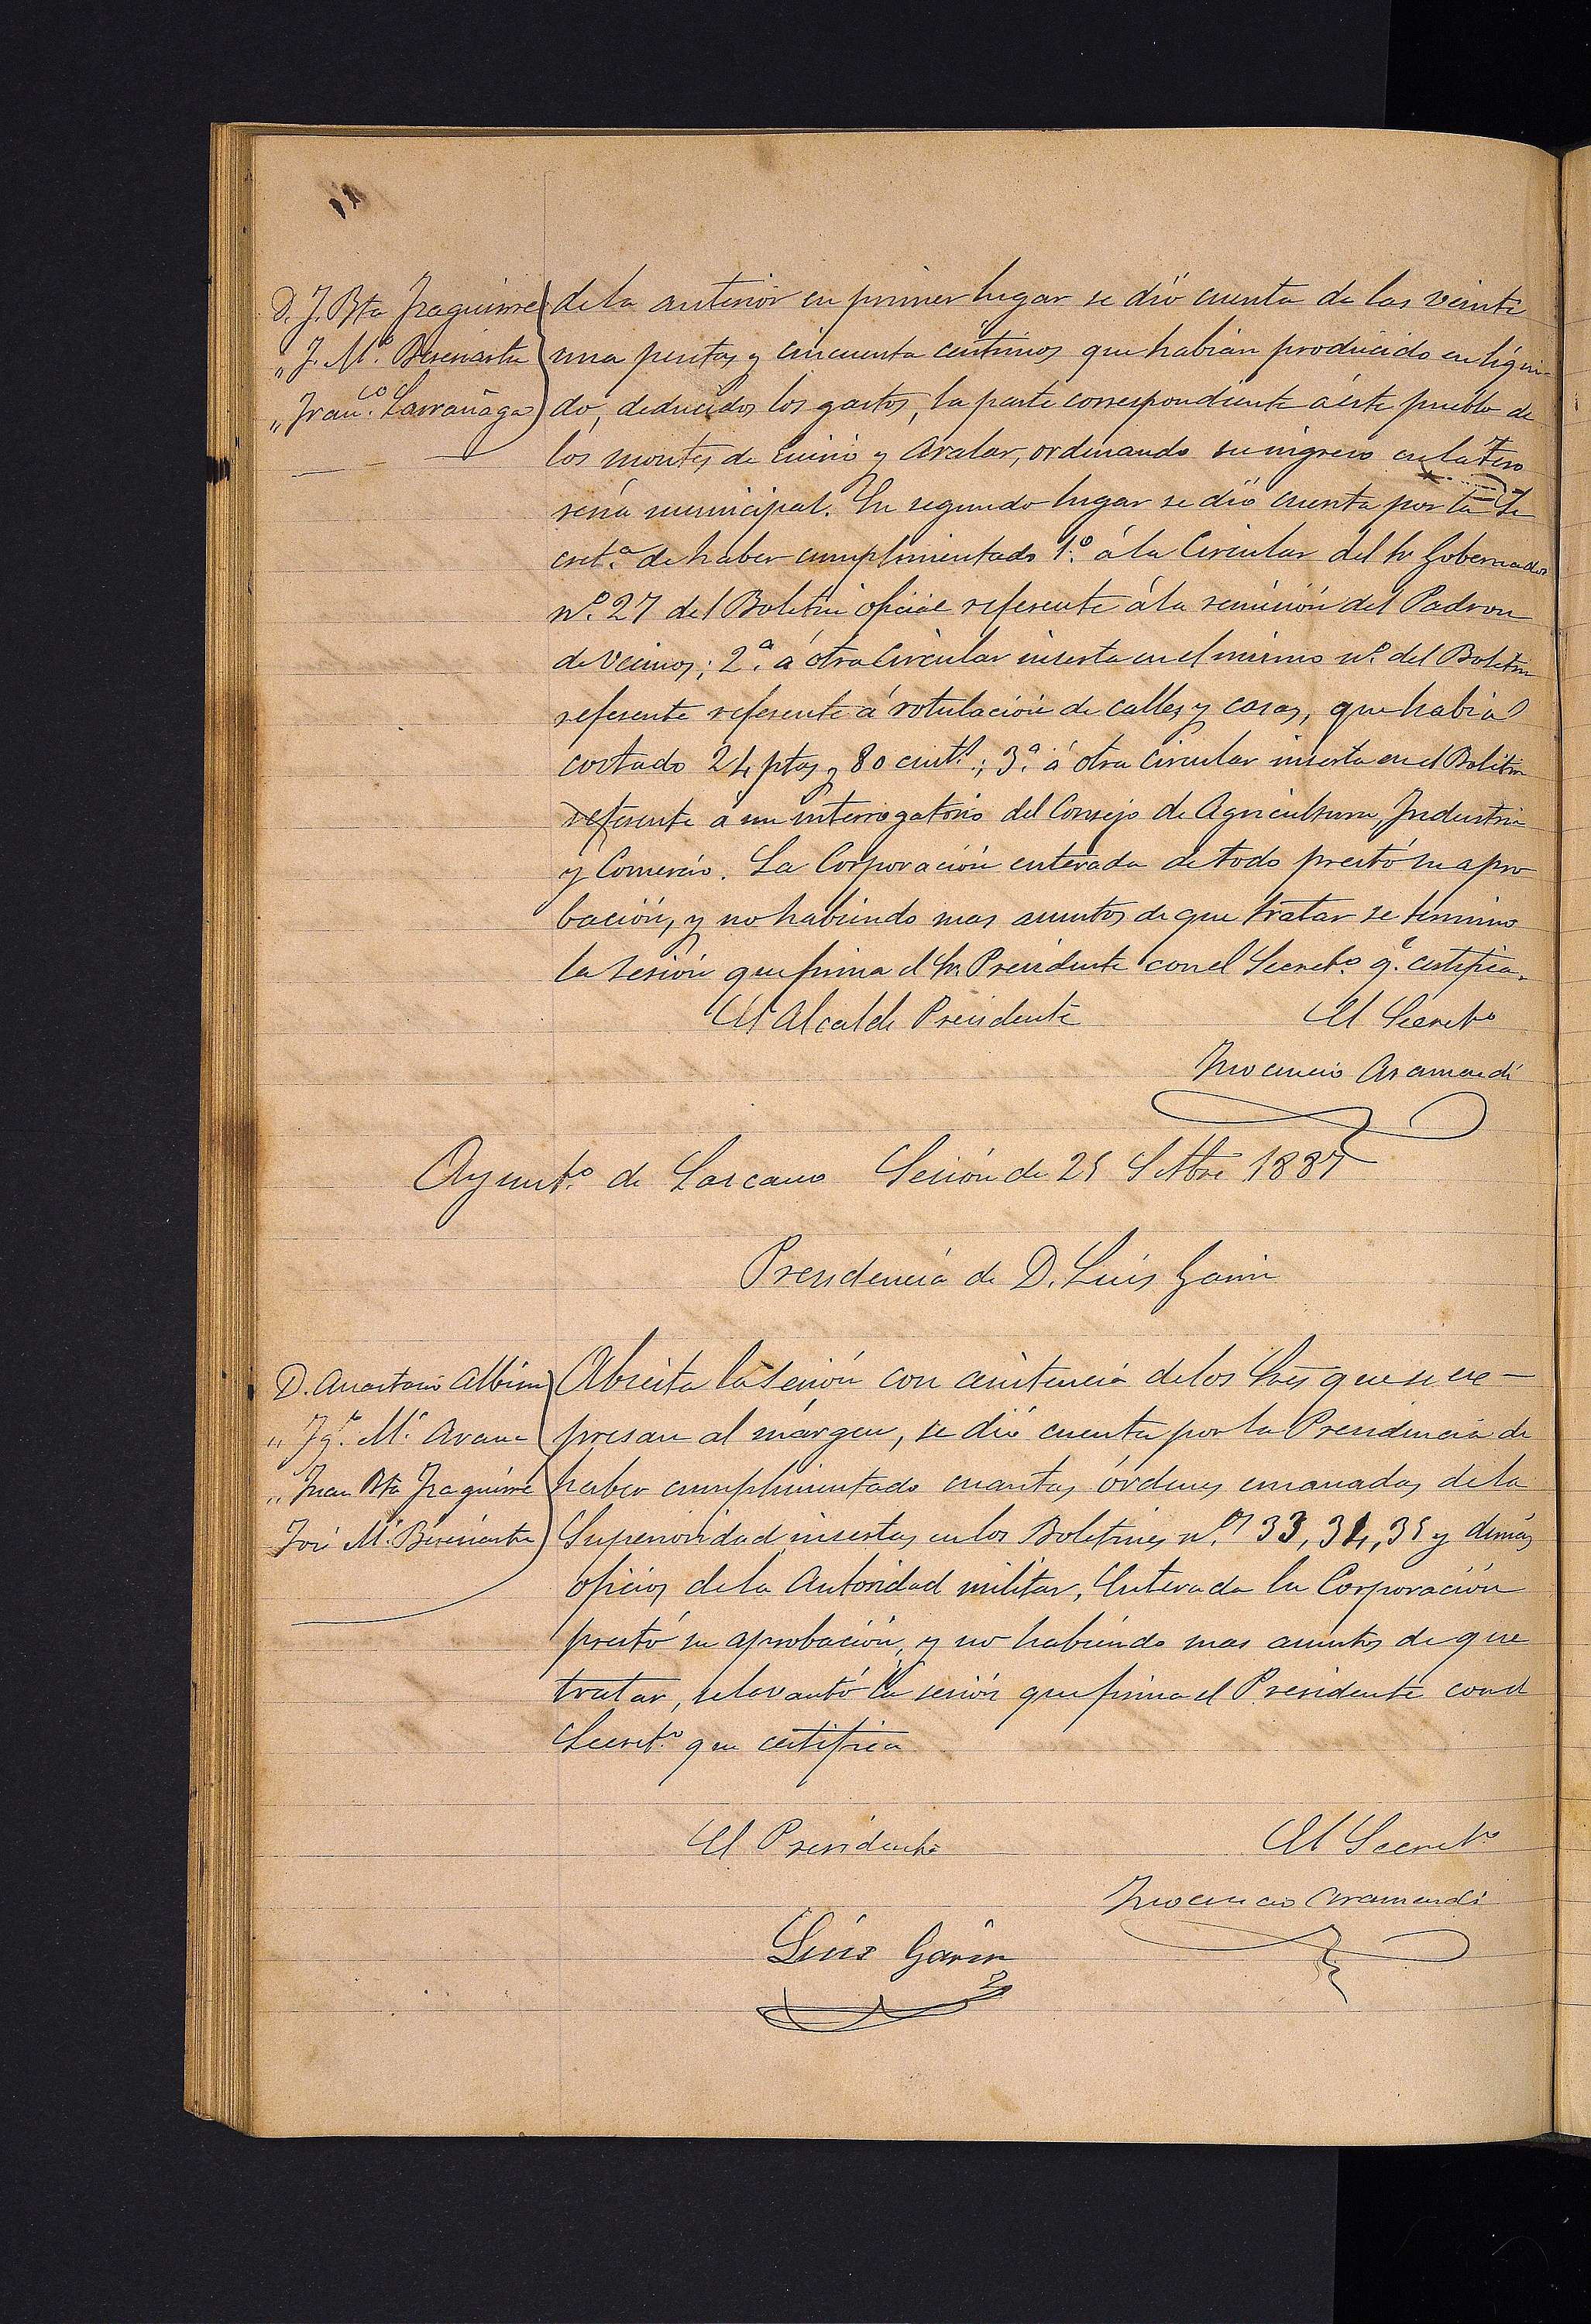 D. J. Bta Iraguirre
" J. M.ª Bereciartu
" Fran.co Larrañaga
de la anterior en primer lugar se dió cuenta de las veinte
una pesetas y cincuenta centimos que habian producido en líqui-
do, deducidos los gastos, la parte correspondiente á éste pueblo de
los montes de Enirio y Aralar, ordenando su ingreso en la Teso
rería municipal. En segundo lugar se dió cuenta por la Se
cret.ª de haber cumplimentado 1.º á la Circular del Sr Gobernador
nº. 27 del Boletin oficial referente á la remisión del Padron
de Vecinos; 2.ª á otra Circular inserta en el mismo nº. del Boletin
referente referente á rotulación de calles y casas, que habia
costado 24 ptas y 80 cent.s; 3.ª á otra circular inserta en el Boletin
referente á un interrogatorio del Consejo de Agricultura, Industria
y Comercio. La Corporación enterada de todo prestó su apro
bación, y no habiendo mas asuntos de que tratar se termino
la sesión que firma el Sr. Presidente con el Secret.º q.e certifica.
El Alcalde Presidente
El Secret.º
Inocencio Aramendi
Ayunt.º de Lazcano Sesión de 25 Setbre 1887
Presidencia de D. Luis Garin
D. Anastasio Albisu
" Ig.º M.ª Arana
" Juan Bta Iraguirre
José M.ª Bereciartu
Abierta la sesión con asistencia de los Sres que se ex-
presan al márgen, se dió cuenta por la Presidencia de
haber cumplimentado cuantas órdenes emanadas de la
Superioridad insertas en los Boletines n.os 33, 34, 35 y demás
oficios de la Autoridad militar. Enterada la Corporación
prestó su aprobación, y no habiendo mas asuntos de que
tratar, se levantó la sesión que firma el Presidente con el
Secret.º que certifica
El Presidente
El Secret.º
Inocencio Aramendi
Luis Garin